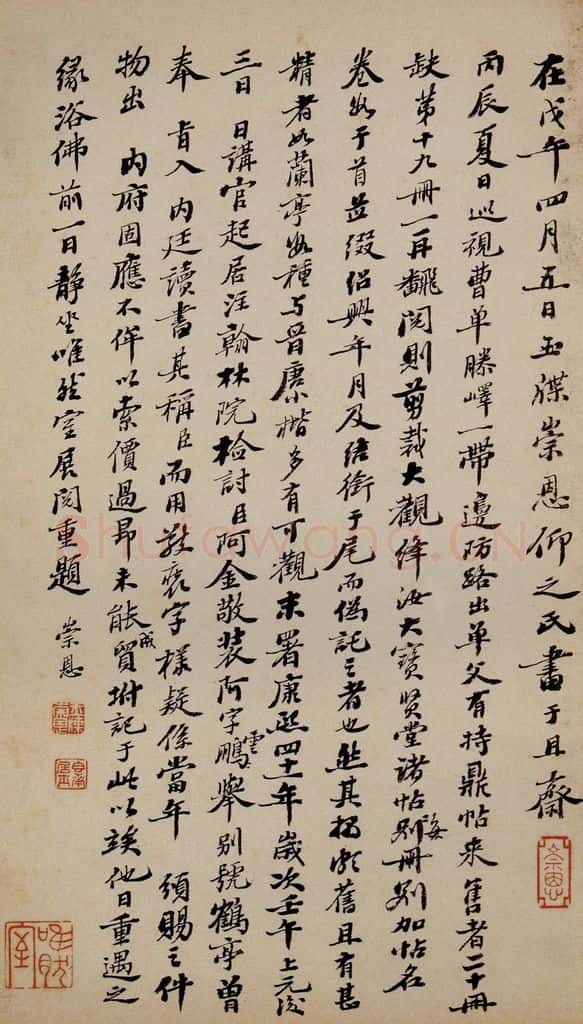 在戊午四月五日玉牒崇恩仰之氏書于且齋
丙辰夏日巡視曹单滕嶧一帶邊防路出单父有持鼎帖来售者二十冊
缺第十九冊一再翻閱則剪裁大觀絳汝大寶賢堂諸帖每冊別加帖名
卷數于首並綴紹興年月及結銜于尾而偽託之者也然其搨頗舊且有甚
精者如蘭亭數種与晉唐小楷多有可觀末署康熙四十一年歲次壬午上元後
三日 日講官起居注翰林院檢討臣阿金敬裝阿字雲鵬舉別號鶴亭曾
奉 旨入 内廷讀書其稱臣而用敬裝字樣疑係當年 頒賜之件
物出 内府固應不侔以索價過昂未能成貿坿記于此以俟他日重遇之
緣浴佛前一日靜坐唯然室展閱重題 崇恩
崇恩
Shufawang.CN